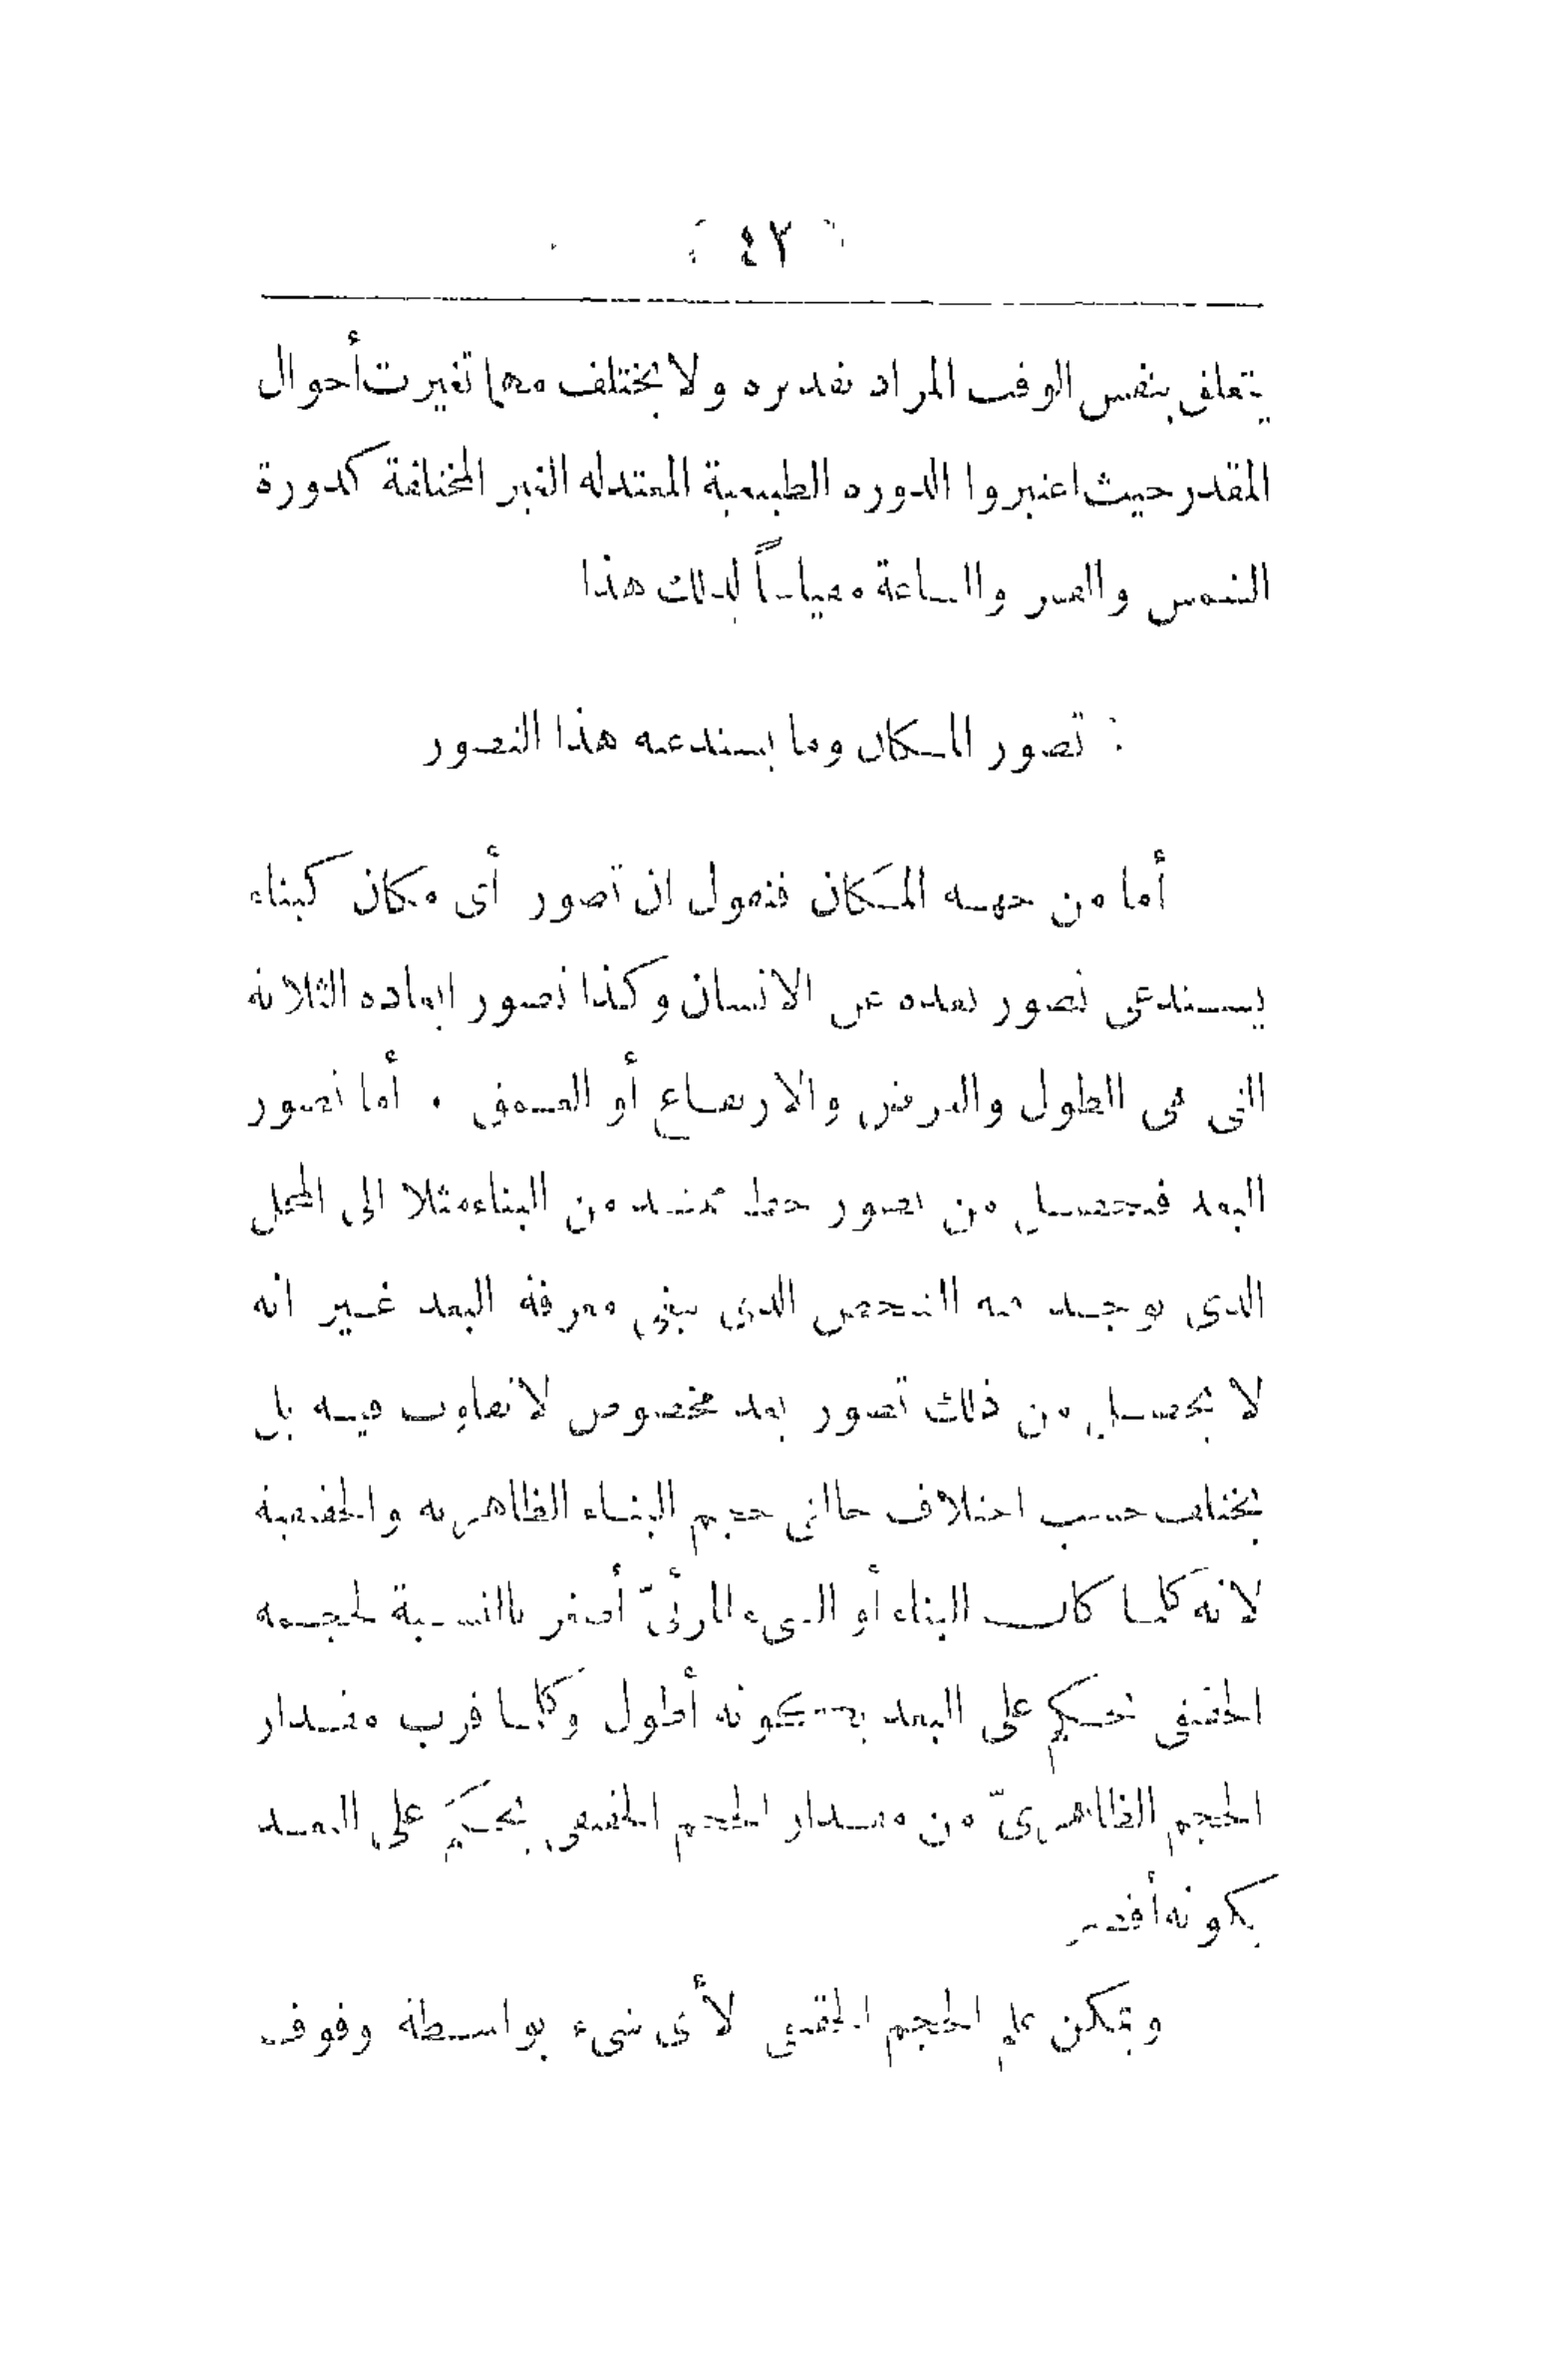 ( ٤٢ )
يتعلق بنفس الوقت المراد تقديره ولا يختلف مهما تغيرت أحوال
المقدر حيث اعتبروا الدورة الطبيعية المعتدلة الغير المختلفة كدورة
الشمس والقمر والساعة مقياساً لذلك هذا
تصور المكان وما يستدعيه هذا التصور
أما من جهة المكان فنقول ان تصور أى مكان كبناء
يستدعى تصور بعده عن الانسان وكذا تصور ابعاده الثلاثة
التى هى الطول والعرض والارتفاع أو العمق . أما تصور
البعد فيحصل من تصور خط ممتد من البناء مثلا الى المحل
الذى يوجد فيه الشخص الذى يبغى معرفة البعد غير انه
لا يحصل من ذلك تصور بعد مخصوص لا تفاوت فيه بل
يختلف حسب اختلاف حالتى حجم البناء الظاهرية والحقيقية
لانه كلما كان البناء أو الشىء المرئىّ أصغر بالنسبة لحجمه
الحقيقى نحكم على البعد بكونه أطول وكلما قرب مقدار
الحجم الظاهرىّ من مقدار الحجم الحقيقى يحكم على البعد
بكونه أقصر
ويمكن علم الحجم الحقيقى لأى شىء بواسطة وقوف